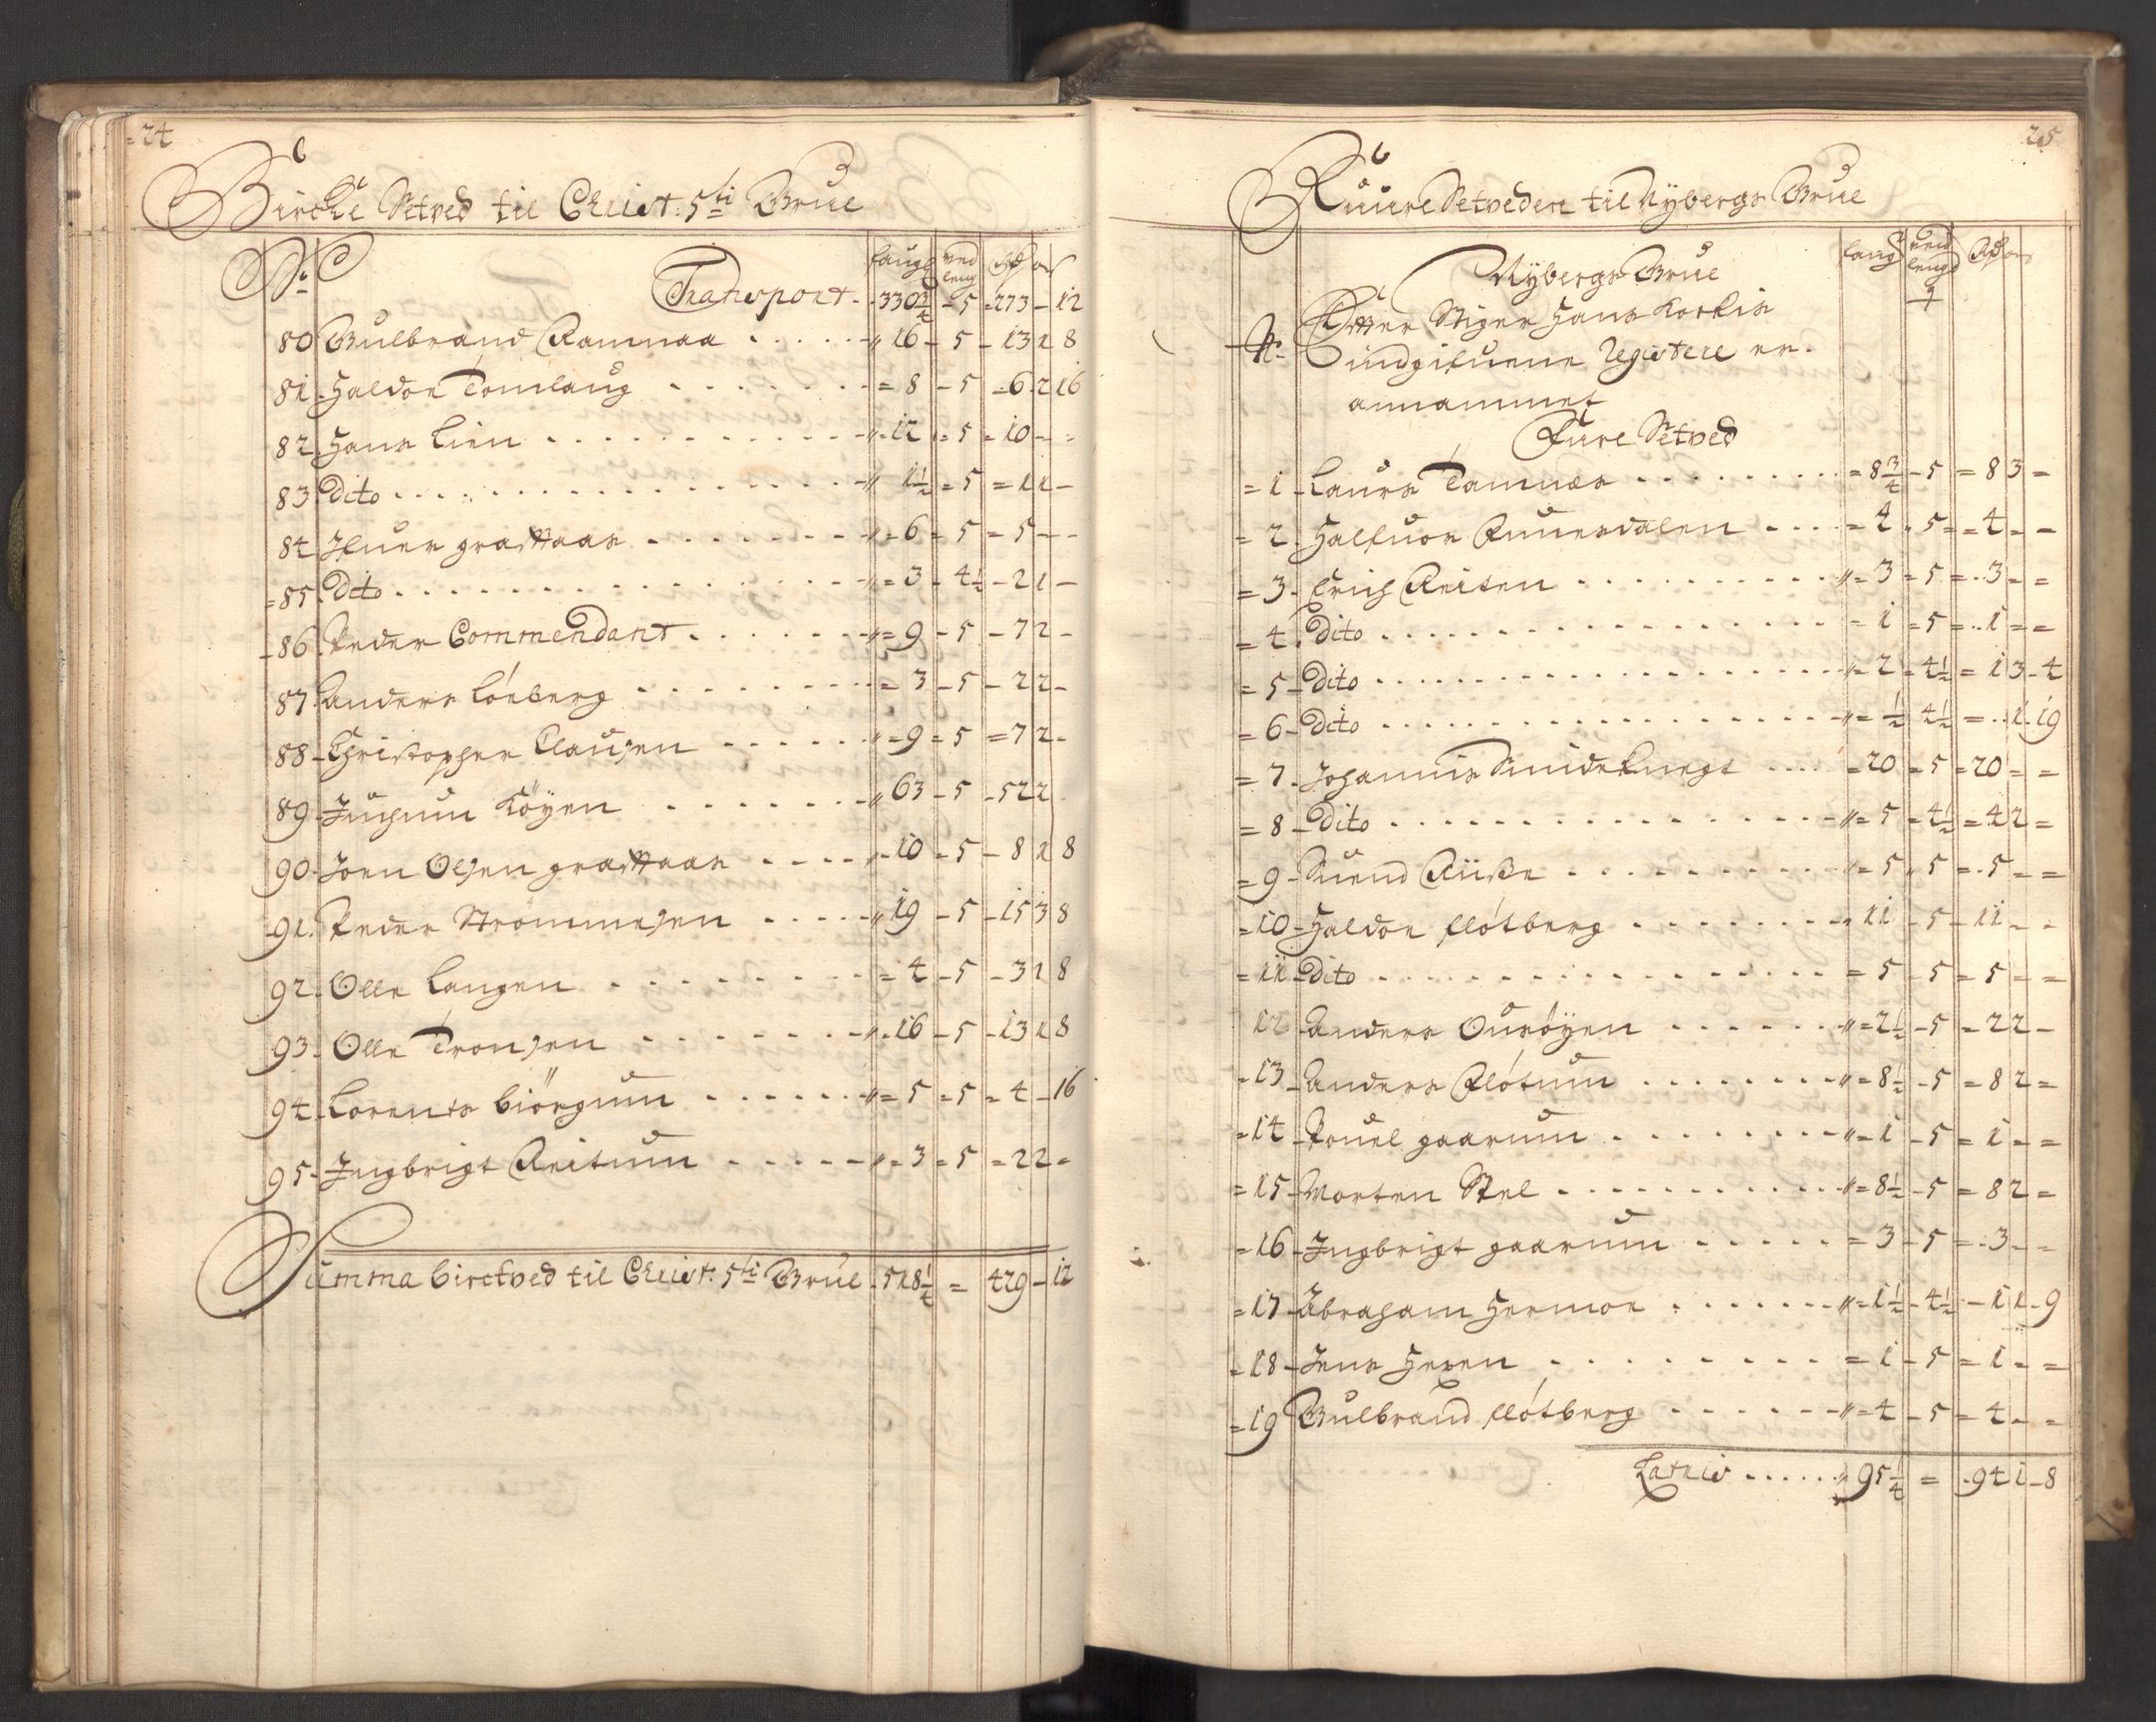 = 24
Bircke Setved til Christ: 5ti Grue
No
faug ved leng Rd ort
Transport - 330 2/4 - 5 - 273 - 12
80 Gulbrand Ramaaa " 16 - 5 - 13 1 8
81 Haldor Tomlaug = 8 - 5 - 6 2 16
82 Hans Lien " 12 = 5 = 10 - -
83 Dito " 1 1/2 = 5 = 1 1 -
84 Ifuer graattaas " = 6 = 5 = 5 - -
= 85 Dito " = 3 - 4 1/2 - 2 1 -
- 86 Peder Commendant " = 9 - 5 - 7 2 -
87 Anders Lönberg = 3 - 5 - 2 2 -
88 - Christopher Clausen " - 9 = 5 = 7 2 -
89 - Juhnun Köyen " 63 - 5 - 52 2
90 - Joen Olsen graattaas - 10 - 5 - 8 1 8
91 - Peder Strömmesen " 19 - 5 - 15 3 8
92 - Olle Langen = 4 - 5 - 3 1 8
93 - Olle Tronsen " - 16 - 5 - 13 1 8
94 - Lorents biörgum " = 5 = 5 = 4 - 16
95 - Ingbrigt Reitum " = 3 = 5 = 2 2 =
Summa birckved til Christ: 5ti Grue - 518 1/4 = 429 - 12
25
Fuure Setveden til Nybergs Grue
faug ved lengd Rd ort
Nybergs Grue
No Efter Stiger Hans
indgifuene Registere er
annammet
Fure Setved
= 1 - Laurs Tamnes = 8 3/4 - 5 = 8 3 =
= 2 - Halfuor Funesdalen = 4 " 5 = = 4 = -
= 3 - Erich Reiten " = 3 = 5 = 3 - =
= 4 - Dito = 1 = 5 = 1 = =
= 5 - Dito " = 2 - 4 1/2 = 1 3 - 4
= 6 - Dito " = 1/2 4 1/2 = 1 - 19
= 7 - Johannis Smideknegt = 20 = 5 = 20 = =
= 8 - Dito " = 5 = 4 1/2 = 4 2 =
= 9 - Suend Riise " = 5 " 5 = 5 - =
= 10 - Haldor flötberg " 11 - 5 - 11 - -
= 11 - Dito = 5 - 5 = 5 - =
12 - Anders Ousöyen " = 2 1/2 - 5 = 2 2 -
= 13 - Anders Flötum " = 8 1/2 - 5 = 8 2 =
= 14 - Pouel gaarum " = 1 - 5 = 1 - =
= 15 - Morten Stel " = 8 1/2 - 5 = 8 2 =
= 16 - Ingbrigt gaarum = 3 - 5 = 3 - -
= 17 - Abraham Hermor " = 1 1/2 - 4 1/2 - 1 1 - 9
= 18 - Jens Hexen = 1 - 5 = 1 - =
= 19 Gulbrand flötberg " = 4 - 5 = 4 - =
Latris " 95 1/4 = 94 1 - 8